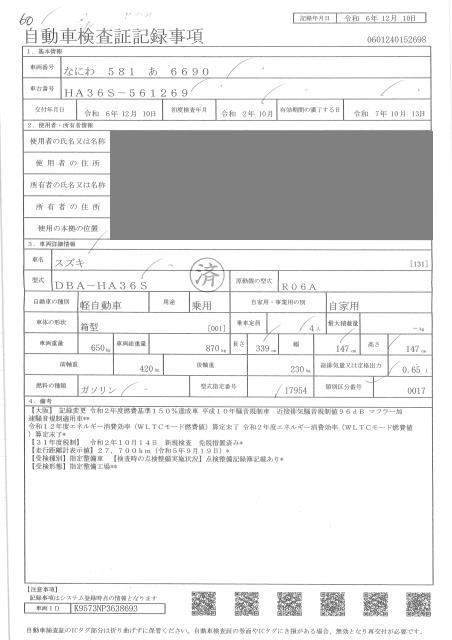 60
記録年月日 令和 6年12月10日
自動車検査証記録事項
0601240152698
1. 基本情報
車両番号 なにわ 581 あ 6690
車台番号 HA36S-561269
交付年月日 令和 6年12月10日 初度検査年月 令和 2年10月 有効期間の満了する日 令和 7年10月13日
2. 使用者・所有者情報
使用者の氏名又は名称
使用者の住所
所有者の氏名又は名称
所有者の住所
使用の本拠の位置
3. 車両詳細情報
車名 スズキ [131]
済
型式 DBA-HA36S 原動機の型式 R06A
自動車の種別 軽自動車 用途 乗用 自家用・事業用の別 自家用
車体の形状 箱型 [001] 乗車定員 4人 最大積載量 -kg
車両重量 650kg 車両総重量 870kg 長さ 339cm 幅 147cm 高さ 147cm
前軸重 420kg 後軸重 230kg 総排気量又は定格出力 0.65 L
燃料の種類 ガソリン 型式指定番号 17954 類別区分番号 0017
4. 備考
【大阪】 記録変更 令和2年度燃費基準150%達成車 平成10年騒音規制車 近接排気騒音規制値96dB マフラー加
速騒音規制適用車**
令和12年度エネルギー消費効率(WLTCモード燃費値)算定未了 令和2年度エネルギー消費効率(WLTCモード燃費値
)算定未了*
【31年度税制】 令和2年10月14日 新規検査 先税措置済み*
【走行距離計表示値】27,700km(令和5年9月19日)*
【受検種別】指定整備車 【検査時の点検整備実施状況】点検整備記録簿記載あり*
【受検形態】指定整備工場**
【注意事項】
記録事項はシステム登録時点の情報となります
車両ID K9573NP3638693
自動車検査証のICタグ部分は折り曲げずに保管ください。自動車検査証の券面やICタグにき損がある場合、無効となり再交付が必要です。